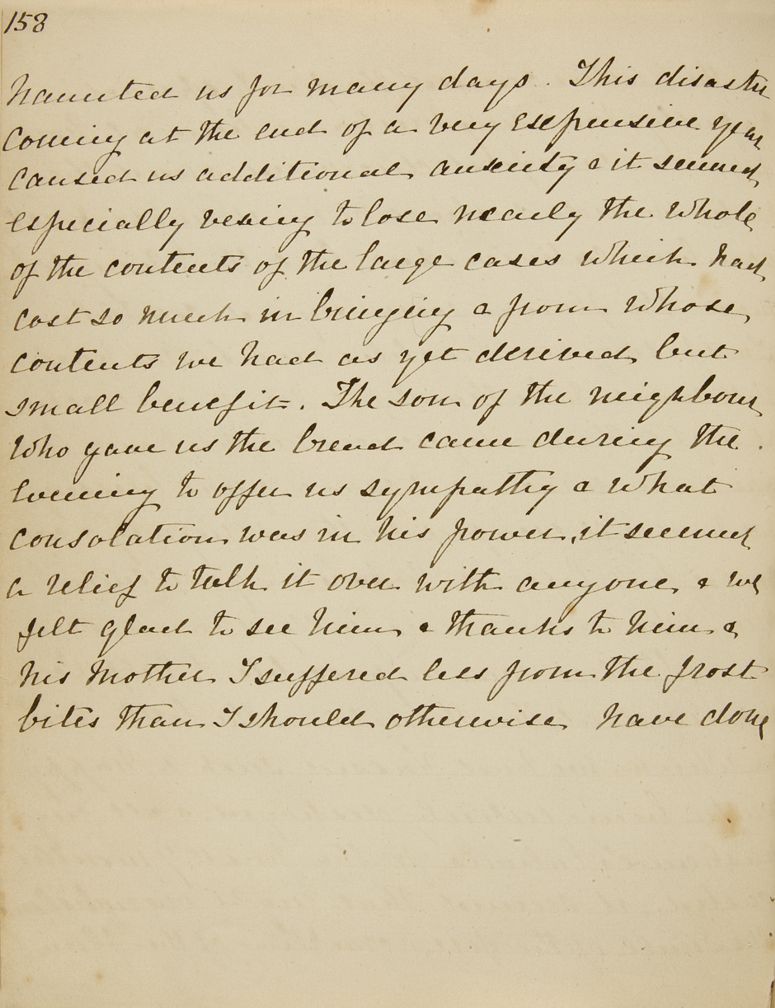 158
haunted us for many days. This disaster
coming at the end of a very expensive year
caused us additional anxiety & it seemed
especially vexing to lose nearly the whole
of the contents of the large cases which had
cost so much in bringing & from whose
contents we had as yet derived but
small benefit. The son of the neighbour
who gave us the bread came during the
evening to offer us sympathy & what
consolation was in his power, it seemed
a relief to talk it over with anyone & we
felt glad to see him & thanks to him &
his Mother I suffered less from the frost
bites than I should otherwise have done